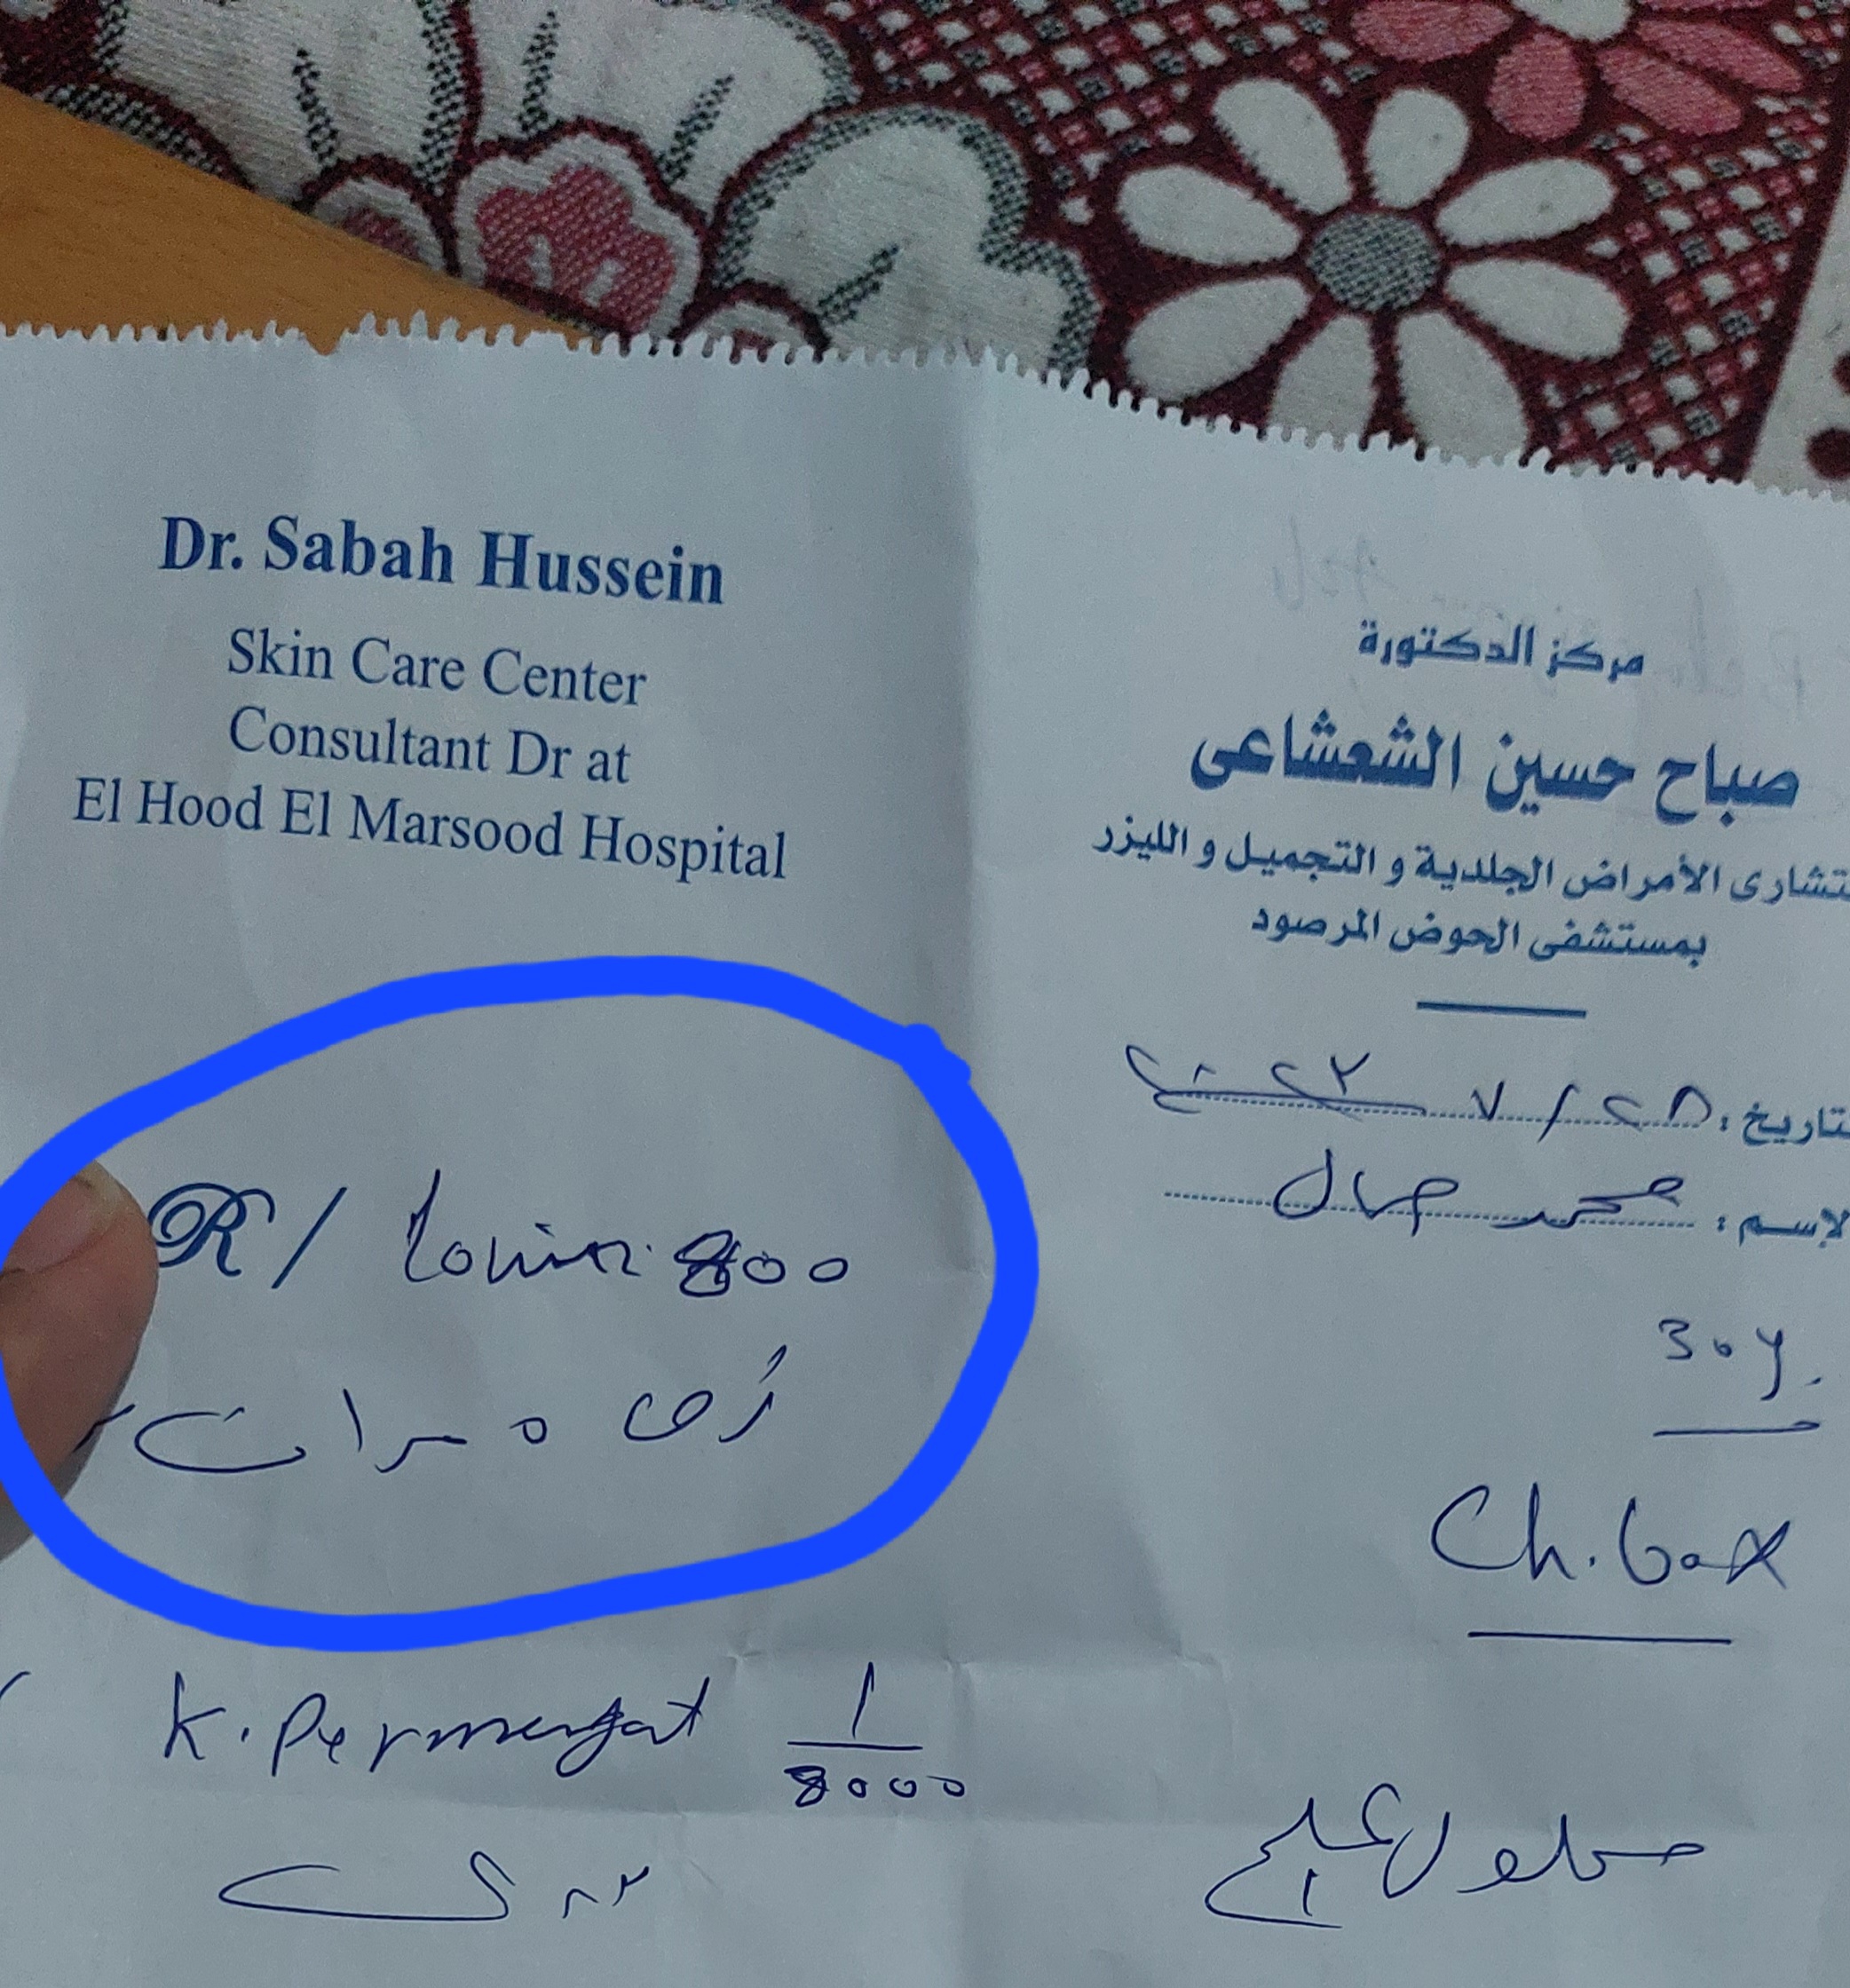 Dr. Sabah Hussein
Skin Care Center
Consultant Dr at
El Hood El Marsood Hospital
مركز الدكتورة
صباح حسين الشعشاعى
تشارى الأمراض الجلدية و التجميل و الليزر
بمستشفى الحوض المرصود
تاريخ : ٢٨ / ٧
لإسم : محمد جمال
30 y.
Ch. Pox
R/ 800
قرص ٥ مرات
K. Permengat 1/8000
محلول